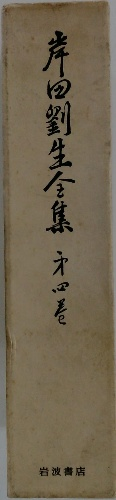 岸田劉生全集 第四巻
岩波書店